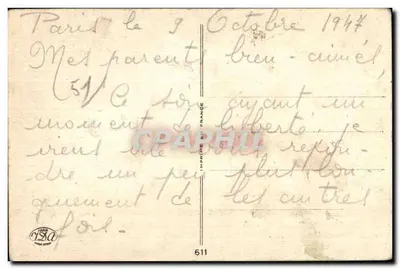 Paris le 9 Octobre 1947
Mes parents bien-aimés,
(51)
Ce soir ayant un
moment de liberté je
viens vite vous répon-
dre un peu plus lon-
guement que les autres
fois.
CPAPHIL
IMPRIMÉ EN FRANCE
611